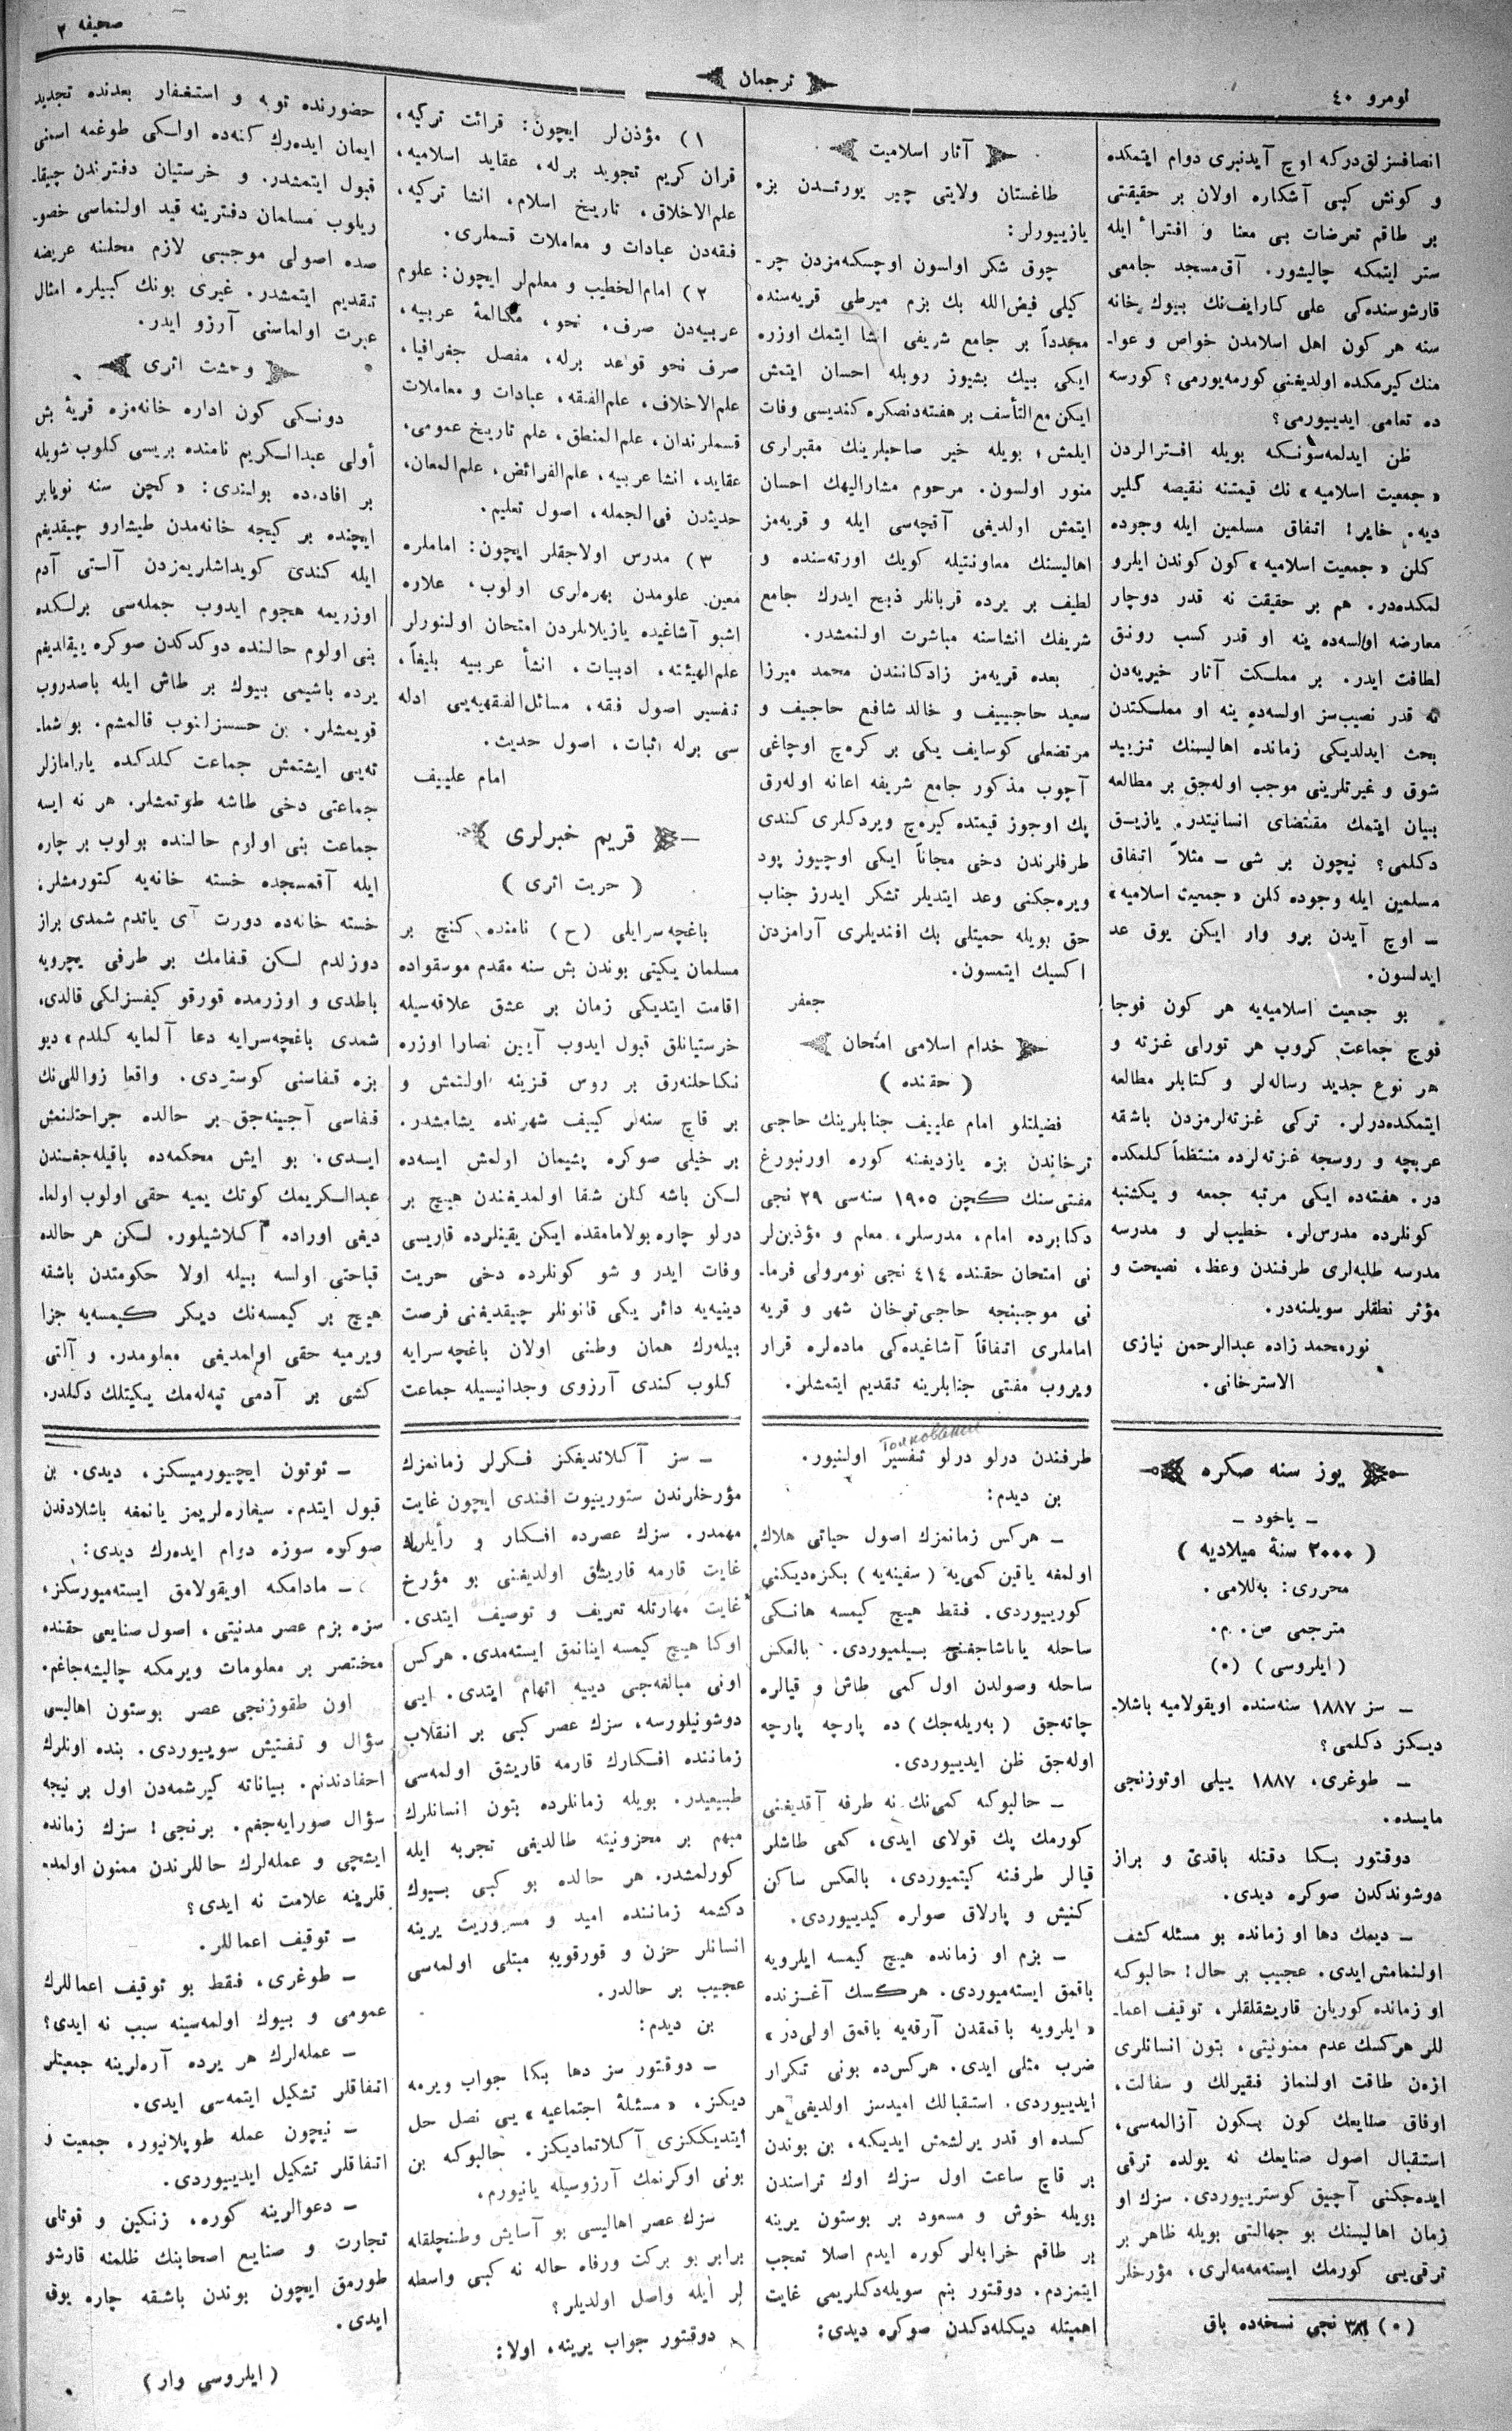 نومرو ٤٠
ترجمان
صحيفه ٢
انصافسزلق‌دركه اوچ آيدنبرى دوام ايتمكده
و كونش كبى آشكاره اولان بر حقيقتى
بر طاقم تعرضات بى معنا و افترا ايله
ستر ايتمكه چاليشور. آق‌مسجد جامعى
قارشوسنده‌كى على كارايف‌نك بيوك خانه
سنه هر كون اهل اسلامدن خواص و عوا-
منك كيرمكده اولديغنى كورمه‌يورمى؟ كورسه
ده تعامى ايدييورمى؟
ظن ايدلمه‌سونكه بويله افترالردن
«جمعيت اسلاميه» نك قيمتنه نقيصه كلير
ديه. خاير! اتفاق مسلمين ايله وجوده
كلن «جمعيت اسلاميه» كون كوندن ايلرو
لمكده‌در. هم بر حقيقت نه قدر دوچار
معارضه اولسه‌ده ينه او قدر كسب رونق
لطافت ايدر. بر مملكت آثار خيريه‌دن
نه قدر نصيب‌سز اولسه‌ده ينه او مملكتدن
بحث ايدلديكى زمانده اهاليسنك تزييد
شوق و غيرتلرينى موجب اوله‌جق بر مطالعه
بيان ايتمك مقتضاى انسانيتدر. يازيق
دكلمى؟ نيچون بر شى ــ مثلاً اتفاق
مسلمين ايله وجوده كلن «جمعيت اسلاميه»
ــ اوچ آيدن برو وار ايكن يوق عد
ايدلسون.
بو جمعيت اسلاميه‌يه هر كون فوجا
فوج جماعت كروب هر تورلى غزته و
هر نوع جديد رساله‌لر و كتابلر مطالعه
ايتمكده‌درلر. تركى غزته‌لرمزدن باشقه
عربچه و روسجه غزته‌لرده منتظماً كلمكده
در. هفته‌ده ايكى مرتبه جمعه و يكشنبه
كونلرده مدرس‌لر، خطيب‌لر و مدرسه
مدرسه طلبه‌لرى طرفندن وعظ، نصيحت و
مؤثر نطقلر سويلنه‌در.
نورمحمد زاده عبدالرحمن نيازى
الاسترخانى.
آثار اسلاميت
طاغستان ولايتى چير يورتدن بزه
يازييورلر:
چوق شكر اولسون اوچسكه‌مزدن چر-
كيلى فيض‌الله بك بزم ميرطى قريه‌سنده
مجدداً بر جامع شريفى انشا ايتمك اوزره
ايكى بيك بشيوز روبله احسان ايتمش
ايكن مع التأسف بر هفته‌دنصكره كنديسى وفات
ايلمش؛ بويله خير صاحبلرينك مقبرلرى
منور اولسون. مرحوم مشاراليهك احسان
ايتمش اولديغى آقچه‌سى ايله و قريه‌مز
اهاليسنك معاونتيله كويك اورته‌سنده و
لطيف بر يرده قربانلر ذبح ايدرك جامع
شريفك انشاسنه مباشرت اولنمشدر.
بعده قريه‌مز زادكانندن محمد ميرزا
سعيد حاجييف و خالد شافع حاجيف و
مرتضعلى كوسايف يكى بر كرچ اوچاغى
آچوب مذكور جامع شريفه اعانه اوله‌رق
پك اوجوز قيمتده كيره‌چ ويردكلرى كندى
طرفلرندن دخى مجاناً ايكى اوچيوز پود
ويره‌جكنى وعد ايتديلر تشكر ايدرز جناب
حق بويله حميتلى بك افنديلرى آرامزدن
اكسيك ايتمسون.
جعفر
خدام اسلامى امتحان
( حقنده )
فضيلتلو امام علييف جنابلرينك حاجى
ترخاندن بزه يازديغنه كوره اورنبورغ
مفتى‌سنك كچن ١٩٠٥ سنه‌سى ٢٩ نجى
دكابرده امام، مدرسلر، معلم و مؤذين‌لر
نى امتحان حقنده ٤١٤ نجى نومرولى فرما-
نى موجبنجه حاجى‌ترخان شهر و قريه
اماملرى اتفاقاً آشاغيده‌كى ماده‌لره قرار
ويروب مفتى جنابلرينه تقديم ايتمشلر.
١) مؤذن‌لر ايچون: قرائت تركيه،
قران كريم تجويد برله، عقايد اسلاميه،
علم‌الاخلاق، تاريخ اسلام، انشا تركيه،
فقه‌دن عبادات و معاملات قسملرى.
٢) امام‌الخطيب و معلم‌لر ايچون: علوم
عربيه‌دن صرف، نحو، مكالمهٔ عربيه،
صرف نحو قوعد برله، مفصل جغرافيا،
علم‌الاخلاف، علم‌الفقه، عبادات و معاملات
قسملرندان، علم‌المنطق، علم تاريخ عمومى،
عقايد، انشا عربيه، علم‌الفرائض، علم‌المعان،
حديثدن فى‌الجمله، اصول تعليم.
٣) مدرس اولاجقلر ايچون: اماملره
معين علومدن بهره‌لرى اولوب، علاوه
اشبو آشاغيده يازيلانلردن امتحان اولنورلر
علم‌الهيئته، ادبيات، انشأ عربيه بليغاً،
تفسير اصول فقه، مسائل‌الفقهيه‌يى ادله
سى برله اثبات، اصول حديث.
امام علييف
قريم خبرلرى
( حريت اثرى )
باغچه‌سرايلى (ح) نامنده كنچ بر
مسلمان يكيتى بوندن بش سنه مقدم موسقواده
اقامت ايتديكى زمان بر عشق علاقه‌سيله
خرستيانلق قبول ايدوب آيين نصارا اوزره
نكاحلنه‌رق بر روس قزينه اولنمش و
بر قاچ سنه‌لر كييف شهرنده يشامشدر.
بر خيلى صوكره پشيمان اولمش ايسه‌ده
لكن باشه كلن شفا اولمديغندن هيچ بر
درلو چاره بولامامقده ايكن يقينلرده قاريسى
وفات ايدر و شو كونلرده دخى حريت
دينيه‌يه دائر يكى قانونلر چيقديغنى فرصت
بيله‌رك همان وطنى اولان باغچه‌سرايه
كلوب كندى آرزوى وجدانيسيله جماعت
حضورنده توبه و استغفار بعدنده تجديد
ايمان ايده‌رك كنه‌ده اولكى طوغمه اسمنى
قبول ايتمشدر. و خرستيان دفترندن چيقا-
ريلوب مسلمان دفترينه قيد اولنماسى خصو-
صده اصولى موجبى لازم محلنه عريضه
تقديم ايتمشدر. غيرى بونك كبيلره امثال
عبرت اولماسنى آرزو ايدر.
وحشت اثرى
دونكى كون اداره خانه‌مزه قريهٔ بش
أولى عبدالكريم نامنده بريسى كلوب شويله
بر افاده‌ده بولندى: «كچن سنه نويابر
ايچنده بر كيجه خانه‌مدن طيشارو چيقديغم
ايله كندى كويداشلريمزدن آلتى آدم
اوزريمه هجوم ايدوب جمله‌سى برلكده
بنى اولوم حالنده دوكدكدن صوكره ييقلديغم
يرده باشيمى بيوك بر طاش ايله باصدروب
قويمشلر. بن حسسزلنوب قالمشم. بو شما-
ته‌يى ايشتمش جماعت كلدكده يارامازلر
جماعتى دخى طاشه طوتمشلر. هر نه ايسه
جماعت بنى اولوم حالنده بولوب بر چاره
ايله آقمسجده خسته خانه‌يه كتورمشلر؛
خسته خانه‌ده دورت آى ياتدم شمدى براز
دوزلدم لكن قفامك بر طرفى يچرويه
باطدى و اوزرمده قورقو كيفسزلكى قالدى،
شمدى باغچه‌سرايه دعا آلمايه كلدم» ديو
بزه قفاسنى كوستردى. واقعا زواللى‌نك
قفاسى آجينه‌جق بر حالده جراحتلنمش
ايدى. بو ايش محكمه‌ده باقيله‌جغندن
عبدالكريمك كوتك يميه حقى اولوب اولما-
ديغى اوراده آكلاشيلور. لكن هر حالده
قباحتى اولسه بيله اولا حكومتدن باشقه
هيچ بر كيمسه‌نك ديكر كيمسه‌يه جزا
ويرميه حقى اولمديغى معلومدر. و آلتى
كشى بر آدمى تپه‌له‌مك يكيتلك دكلدر.
يوز سنه صكره
ــ ياخود ــ
( ٢٠٠٠ سنهٔ ميلاديه )
محررى: به‌للامى.
مترجمى ص. م.
(ايلروسى) (٥)
ــ سز ١٨٨٧ سنه‌سنده اويقولاميه باشلا-
ديكز دكلمى؟
ــ طوغرى، ١٨٨٧ ييلى اوتوزنجى
مايسده.
دوقتور بكا دقتله باقدى و براز
دوشوندكدن صوكره ديدى.
ــ ديمك دها او زمانده بو مسئله كشف
اولنمامش ايدى. عجيب بر حال! حالبوكه
او زمانده كوريلن قاريشقلقلر، توقيف اعما-
للر هركسك عدم ممنونيتى، بتون انسانلرى
ازه‌ن طاقت اولنماز فقيرلك و سفالت،
اوفاق صنايعك كون بكون آزالمه‌سى،
استقبال اصول صنايعك نه يولده ترقى
ايده‌جكنى آچيق كوسترييوردى. سزك او
زمان اهاليسنك بو جهالتى بويله ظاهر بر
ترقى‌يى كورمك ايسته‌مه‌مه‌لرى، مؤرخلر
(٥) ٣٨ نجى نسخه‌ده باق
طرفندن درلو درلو تفسير اولنيور.
толкование
بن ديدم:
ــ هركس زمانمزك اصول حياتى هلاك
اولمغه ياقين كمى‌يه (سفينه‌يه) بكزه‌ديكنى
كورييوردى. فقط هيچ كيمسه هانكى
ساحله ياناشاجغنى بيلميوردى. بالعكس
ساحله وصولدن اول كمى طاش و قيالره
چاته‌جق (به‌ريله‌جك) ده پارچه پارچه
اوله‌جق ظن ايدييوردى.
ــ حالبوكه كمى‌نك نه طرفه آقديغنى
كورمك پك قولاى ايدى، كمى طاشلر
قيالر طرفنه كيتميوردى، بالعكس ساكن
كنيش و پارلاق صولره كيدييوردى.
ــ بزم او زمانده هيچ كيمسه ايلرويه
باقمق ايسته‌ميوردى. هركسك آغزنده
«ايلرويه باقمقدن آرقه‌يه باقمق اولى‌در»
ضرب مثلى ايدى. هركس‌ده بونى تكرار
ايدييوردى. استقبالك اميدسز اولديغى هر
كسده او قدر يرلشمش ايديكه، بن بوندن
بر قاچ ساعت اول سزك اوك تراسندن
بويله خوش و مسعود بر بوستون يرينه
بر طاقم خرابه‌لر كوره ايدم اصلا تعجب
ايتمزدم. دوقتور بنم سويله‌دكلريمى غايت
اهميتله ديكله‌دكدن صوكره ديدى:
ــ سز آكلاتديغكز فكرلر زمانمزك
مؤرخلرندن ستورييوت افندى ايچون غايت
مهمدر. سزك عصرده افكار و رأيلرك
غايت قارمه قاريشق اولديغنى بو مؤرخ
غايت مهارتله تعريف و توصيف ايتدى.
اوكا هيچ كيمسه اينانمق ايسته‌مدى. هركس
اونى مبالغه‌جى دييه اتهام ايتدى. ايى
دوشونيلورسه، سزك عصر كبى بر انقلاب
زماننده افكارك قارمه قاريشق اولمه‌سى
طبيعيدر. بويله زمانلرده بتون انسانلرك
مبهم بر محزونيته طالديغى تجربه ايله
كورلمشدر. هر حالده بو كبى بيوك
دكشمه زماننده اميد و مسروريت يرينه
انسانلر حزن و قورقويه مبتلى اولمه‌سى
عجيب بر حالدر.
بن ديدم:
ــ دوقتور سز دها بكا جواب ويرمه
ديكز، «مسئلهٔ اجتماعيه» يى نصل حل
ايتديككزى آكلاتماديكز. حالبوكه بن
بونى اوكرنمك آرزوسيله يانيورم.
سزك عصر اهاليسى بو آسايش وطنچلقله
برابر بو بركت ورفاه حاله نه كبى واسطه
لر ايله واصل اولديلر؟
دوقتور جواب يرينه، اولا:
ــ توتون ايچيورميسكز، ديدى. بن
قبول ايتدم. سيغاره‌لريمز يانمغه باشلادقدن
صوكره سوزه دوام ايده‌رك ديدى:
ــ مادامكه اويقولامق ايسته‌ميورسكز،
سزه بزم عصر مدنيتى، اصول صنايعى حقنده
مختصر بر معلومات ويرمكه چاليشه‌جاغم.
اون طقوزنجى عصر بوستون اهاليسى
سؤال و تفتيش سوييوردى. بنده اونلرك
احفادندنم. بياناته كيرشمه‌دن اول بر نيجه
سؤال صورايه‌جغم. برنجى! سزك زمانده
ايشچى و عمله‌لرك حاللرندن ممنون اولمد-
قلرينه علامت نه ايدى؟
ــ توقيف اعماللر.
ــ طوغرى، فقط بو توقيف اعماللرك
عمومى و بيوك اولمه‌سينه سبب نه ايدى؟
ــ عمله‌لرك هر يرده آره‌لرينه جمعيتلر
اتفاقلر تشكيل ايتمه‌سى ايدى.
ــ نيچون عمله طوپلانيور، جمعيت و
اتفاقلر تشكيل ايدييوردى.
ــ دعوالرينه كوره، زنكين و قوتلى
تجارت و صنايع اصحابنك ظلمنه قارشو
طورمق ايچون بوندن باشقه چاره يوق
ايدى.
(ايلروسى وار)